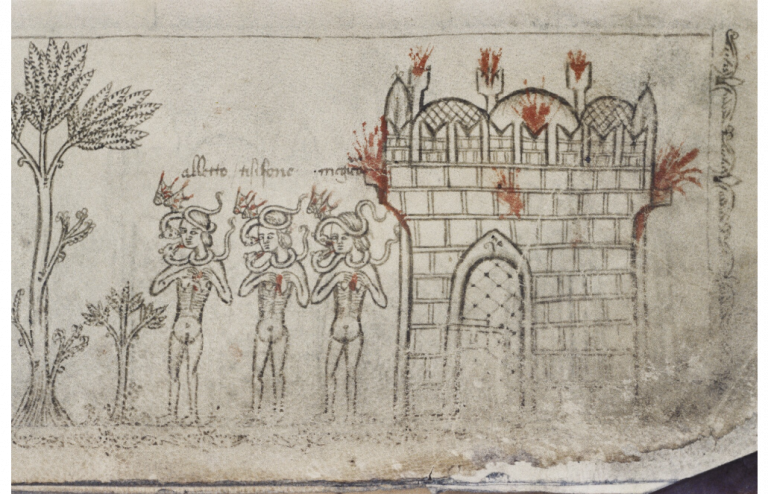 alletto tisifone megiera